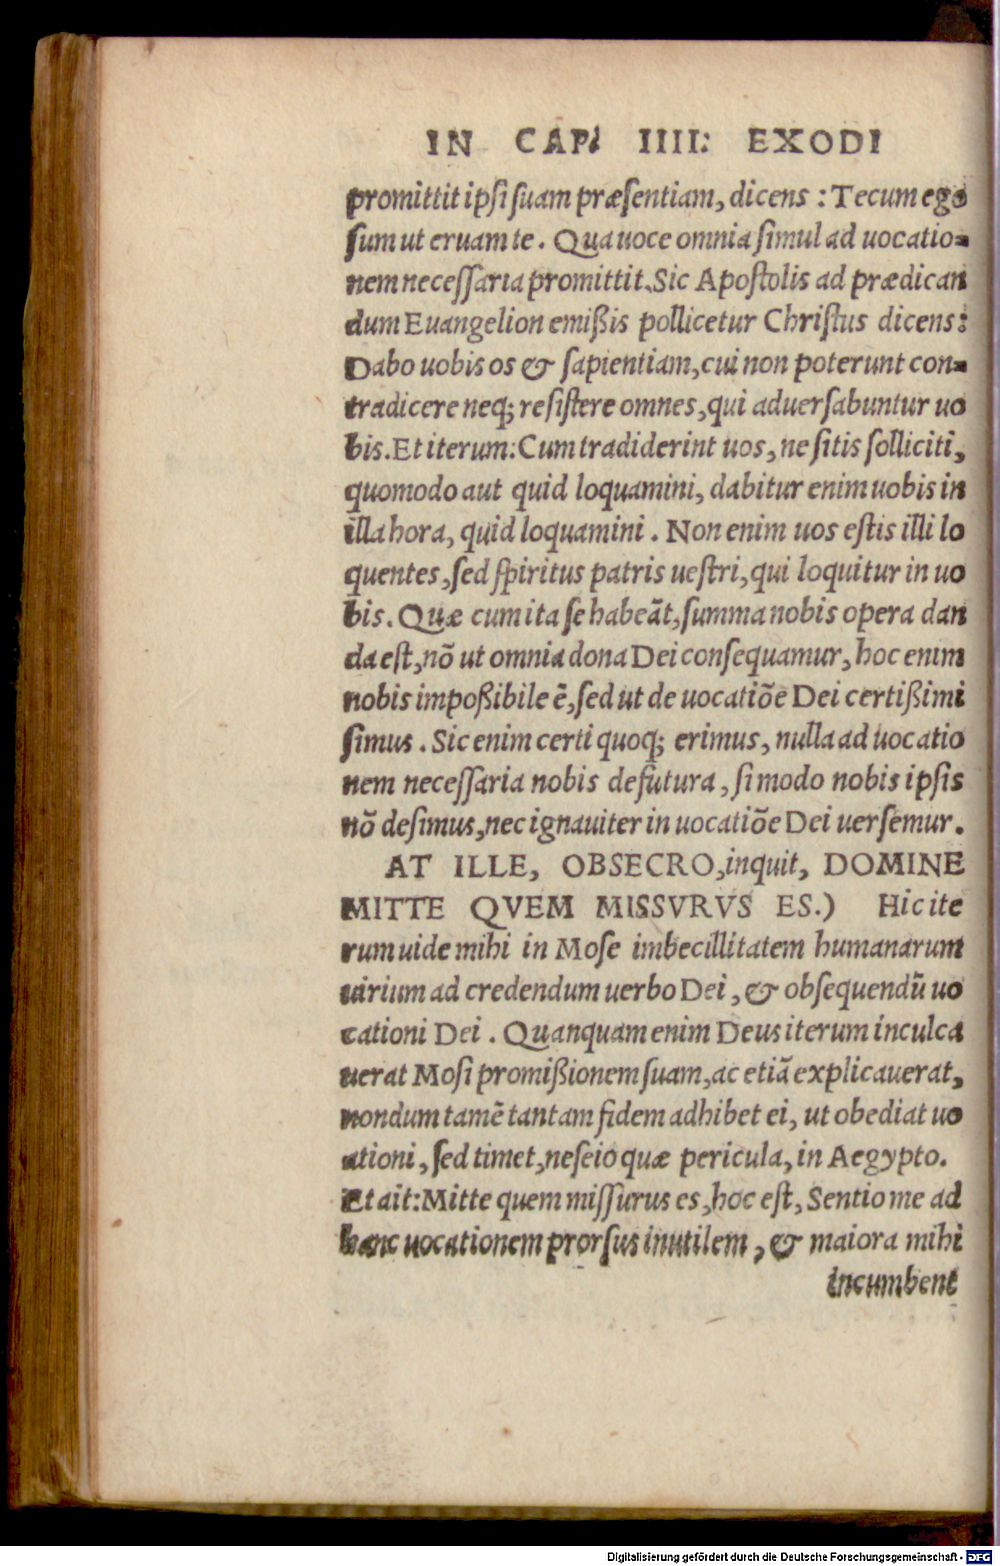 IN CAP. IIII. EXODI
promittit ipsi suam præsentiam, dicens : Tecum ego
sum ut eruam te. Qua uoce omnia simul ad uocatio=
nem necessaria promittit. Sic Apostolis ad prædican
dum Euangelion emißis pollicetur Christus dicens:
Dabo uobis os & sapientiam, cui non poterunt con=
tradicere neq; resistere omnes, qui aduersabuntur uo
bis. Et iterum: Cum tradiderint uos, ne sitis solliciti,
quomodo aut quid loquamini, dabitur enim uobis in
illa hora, quid loquamini. Non enim uos estis illi lo
quentes, sed spiritus patris uestri, qui loquitur in uo
bis. Quæ cum ita se habeãt, summa nobis opera dan
da est, nõ ut omnia dona Dei consequamur, hoc enim
nobis impoßibile ẽ, sed ut de uocatiõe Dei certißimi
simus. Sic enim certi quoq; erimus, nulla ad uocatio
nem necessaria nobis defutura, si modo nobis ipsis
nõ desimus, nec ignauiter in uocatiõe Dei uersemur.
AT ILLE, OBSECRO, inquit, DOMINE
MITTE QVEM MISSVRVS ES.) Hic ite
rum uide mihi in Mose imbecillitatem humanarum
uirium ad credendum uerbo Dei, & obsequendũ uo
cationi Dei. Quanquam enim Deus iterum inculca
uerat Mosi promißionem suam, ac etiã explicauerat,
nondum tamẽ tantam fidem adhibet ei, ut obediat uo
ationi, sed timet, neseio quæ pericula, in Aegypto.
Et ait: Mitte quem missurus es, hoc est, Sentio me ad
hanc uocationem prorsus inutilem, & maiora mihi
incumbent
Digitalisierung gefördert durch die Deutsche Forschungsgemeinschaft - DFG